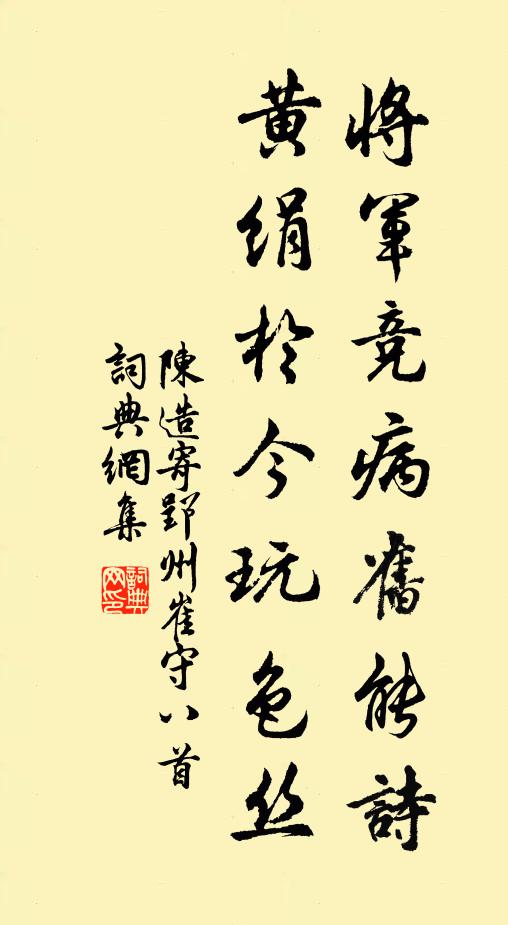 將軍竞病舊能詩
黃绢於今玩色丝
陳造寄郢州崔守八首
詞典網集
詞典
网印